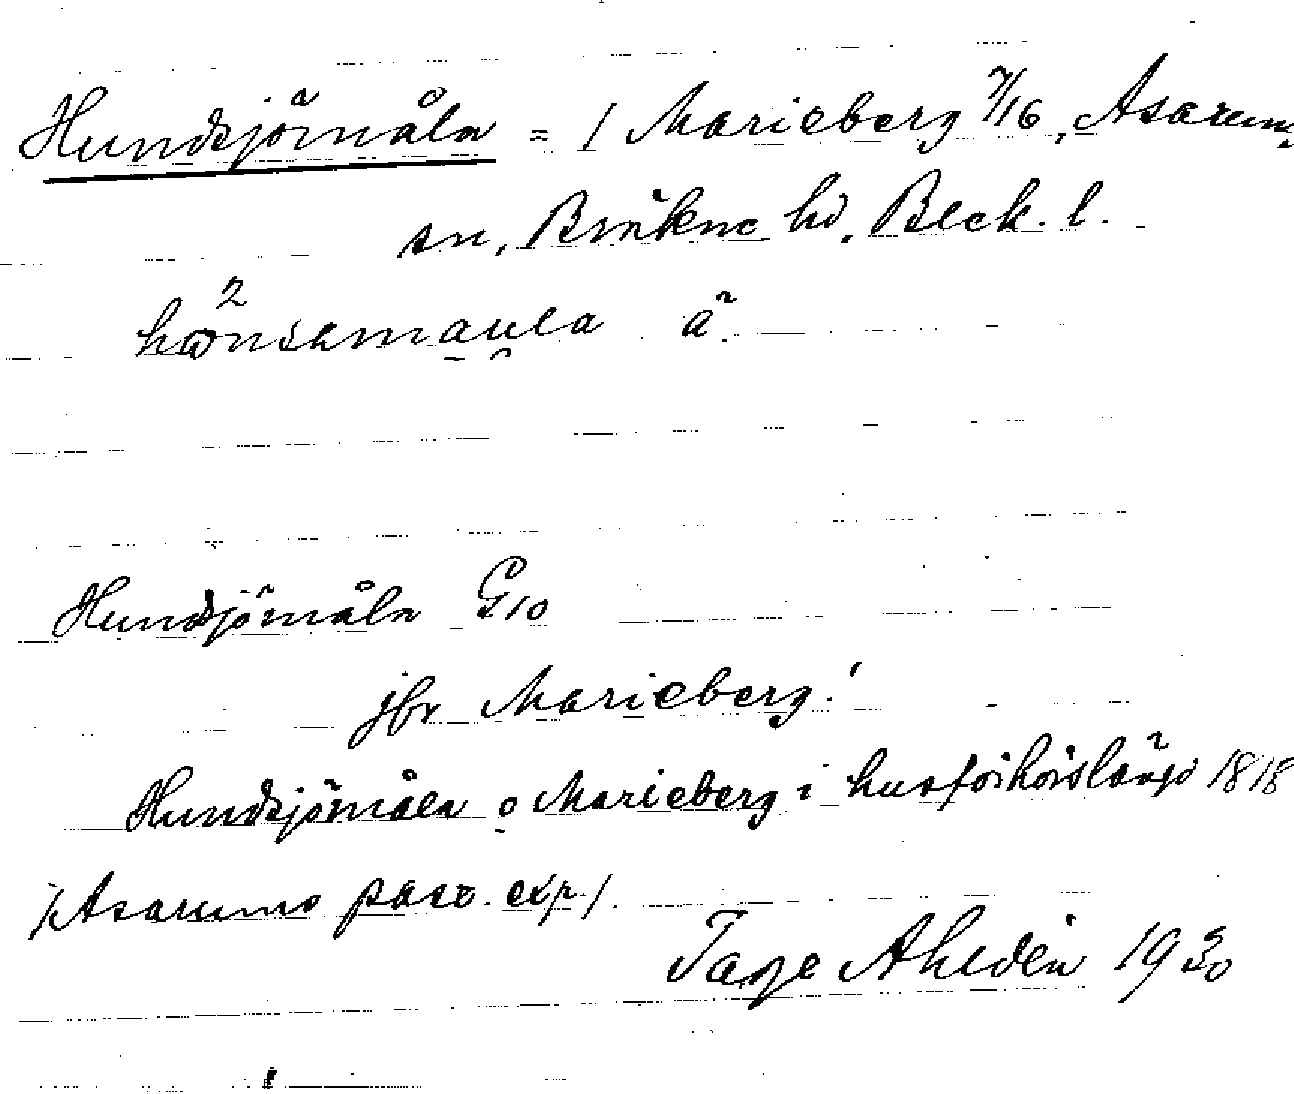 Hundsjömåla = / Marieberg 7/16, Asarums
sn, Bräkne hd. Bleck. l.
Hundsjömåla G10
jfr Marieberg!
Hundsjömåla o Marieberg i husförhörslängd 1818
/Asarums past. exp./
Tage Ahldén 1930